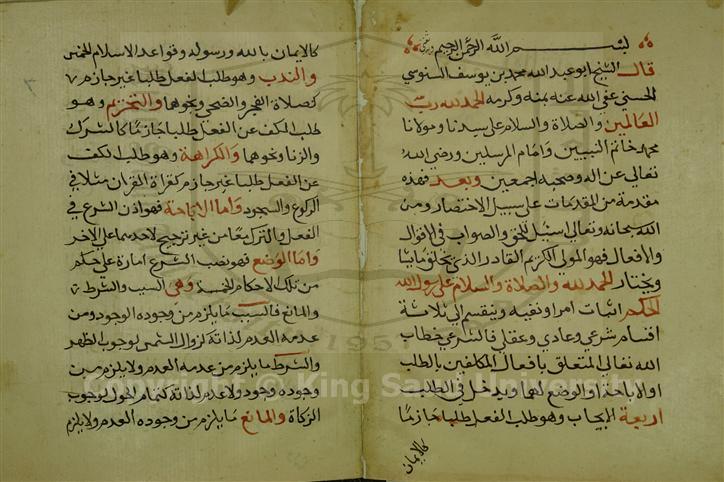 بسم الله الرحمن الرحيم
قال الشيخ ابو عبد الله محمد بن يوسف السنوسي
الحسني عفى الله عنه بمنه وكرمه الحمد لله رب
العالمين والصلاة والسلام على سيدنا ومولانا
محمد خاتم النبيين وامام المرسلين ورضي الله
تعالى عن اله وصحبه اجمعين وبعد فهذه
مقدمة من المقدمات على سبيل الاختصار ومن
الله سبحانه وتعالى اسئيل الحق والصواب في الاقوال
والافعال فهو المولى الكريم القادر الذي يخلق ما يشا
ويختار الحمد لله والصلاة والسلام على رسول الله
الحكم اثبات امر او نفيه وينقسم الى ثلاثة
اقسام شرعي وعادي وعقلي فالشرعي خطاب
الله تعالى المتعلق بافعال المكلفين بالطلب
او الاباحة او الوضع لهما ويدخل في الطلب
اربعة الايجاب وهو طلب الفعل طلبا جازما
كالايمان
كالايمان بالله ورسوله وقواعد الاسلام الخمس
والندب وهو طلب الفعل طلبا غير جازم
كصلاة الفجر والضحى ونحوها والتحريم وهو
طلب الكف عن الفعل طلبا جازما كالشرك
والزنا ونحوهما والكراهة وهو طلب الكف
عن الفعل طلبا غير جازم كقراة القران مثلا في
الركوع والسجود واما الاباحة فهو اذن الشرع في
الفعل والترك معا من غير ترجيح لاحدهما على الاخر
واما الوضع فهو نصب الشرع امارة على حكم
من تلك الاحكام الخمسة وهي السبب والشرط
والمانع فالسبب ما يلزم من وجوده الوجود ومن
عدمه العدم لذاته كزوال الشمس لوجوب الظهر
والشرط ما يلزم من عدمه العدم ولا يلزم من
وجوده وجود ولا عدم لذاته كتمام الحول لوجوب
الزكاة والمانع ما يلزم من وجوده العدم ولا يلزم
Copyright © King Saud University
1957